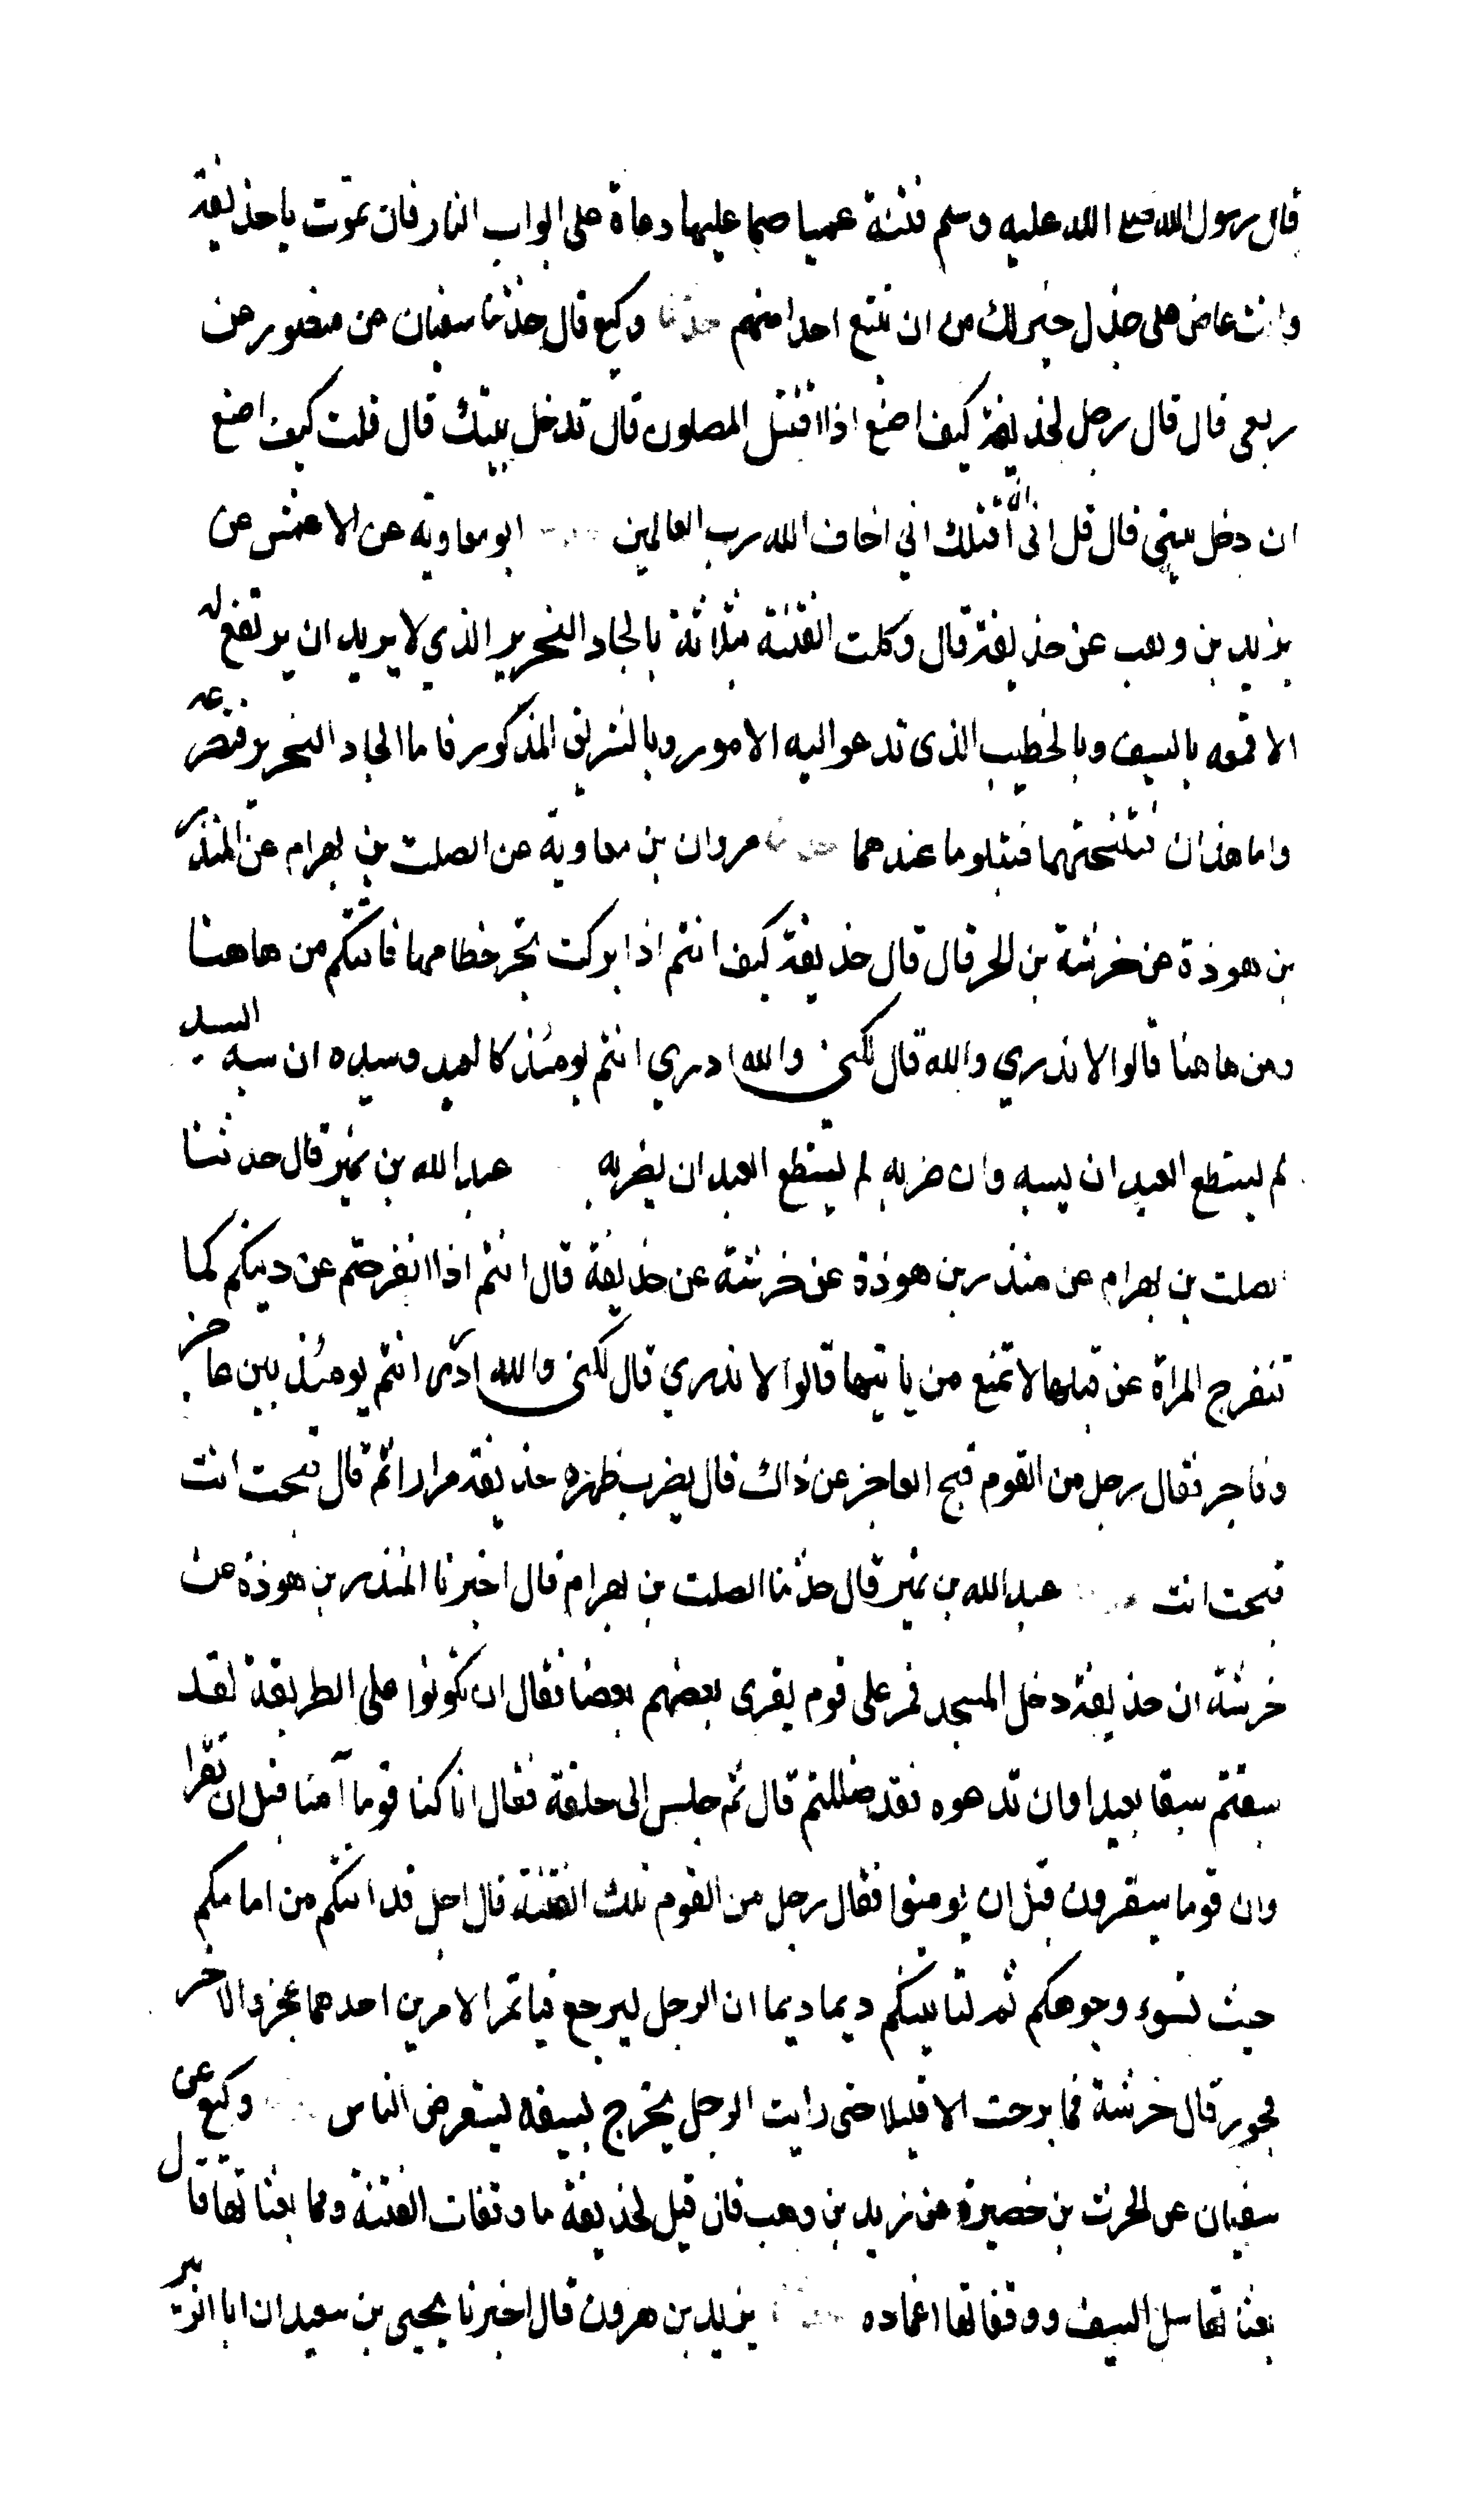 قال رسول الله صلى الله عليه وسلم فتنة عميا صما عليها دعاة على ابواب النار فان تموت يا حذيفة
وانت عاض على جذل خير لك من ان تتبع احدا منهم حدثنا وكيع قال حدثنا سفيان عن منصور عن
ربعي قال قال رجل لحذيفة كيف اصنع اذا اقتتل المصلون قال تدخل بيتك قال قلت كيف اصنع
ان دخل بيتي قال قل اني لن اقتلك اني اخاف الله رب العالمين ابو معاوية عن الاعمش عن
يزيد بن وهب عن حذيفة قال وكلت الفتنة بثلاثة بالجاد النحرير الذي لا يريد ان يرتفع له
الا قمعه بالسيف وبالخطيب الذي تدعو اليه الامور وبالشريف المذكور فاما الجاد النحرير فتصرعه
واما هذان فتبحثهما فتبلو ما عندهما حدثنا مروان بن معاوية عن الصلت بن بهرام عن المنذر
بن هوذة عن خرشة بن الحر قال قال حذيفة كيف انتم اذا بركت تجر خطامها فاتتكم من هاهنا
ومن هاهنا قالوا لا ندري والله قال لكني والله ادري انتم يومئذ كالعبد وسيده ان سبه السيد
لم يستطع العبد ان يسبه وان ضربه لم يستطع العبد ان يضربه عبد الله بن نمير قال حدثنا
الصلت بن بهرام عن منذر بن هوذة عن خرشة عن حذيفة قال انتم اذا انفرجتم عن دينكم كما
تنفرج المراة عن قبلها لا تمنع من ياتيها قالوا لا ندري قال لكني والله ادري انتم يومئذ بين عاجز
وفاجر فقال رجل من القوم قبح العاجز عن ذاك قال يضرب ظهره حذيفة مرارا ثم قال قبحت انت
قبحت انت عبد الله بن نمير قال حدثنا الصلت بن بهرام قال اخبرنا المنذر بن هوذة عن
خرشة ان حذيفة دخل المسجد فمر على قوم يقرى بعضهم بعضا فقال ان تكونوا على الطريقة لقد
سبقتم سبقا بعيدا وان تدعوه فقد ضللتم قال ثم جلس الى حلقة فقال انا كنا قوما آمنا قبل ان نقرا
وان قوما سيقرون قبل ان يومنوا فقال رجل من القوم تلك الفتنة قال اجل قد اتتكم من امامكم
حيث تسوء وجوهكم ثم لتاتينكم ديما ديما ان الرجل ليرجع فياتمر الامرين احدهما عجز والاخر
فجور قال خرشة فما برحت الا قليلا حتى رايت الرجل يخرج بسيفه يستعرض الناس وكيع عن
سفيان عن الحرث بن خصيرة عن زيد بن وهب قال قيل لحذيفة ما وقفات الفتنة وما بعثاتها قال
بعثاتها سل السيف ووقفاتها اغماده يزيد بن هرون قال اخبرنا يحيى بن سعيد ان ابا الزبير